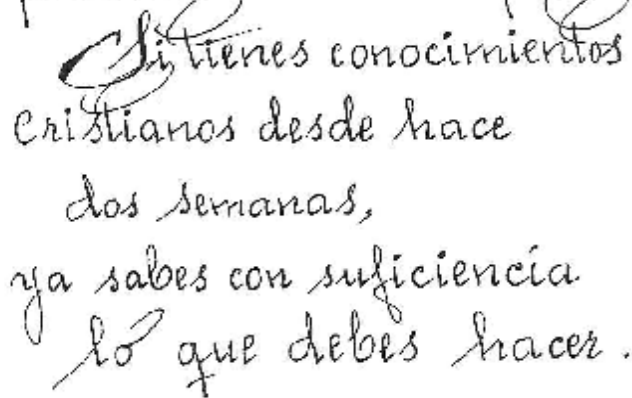 Si tienes conocimientos
Cristianos desde hace
dos semanas,
ya sabes con suficiencia
lo que debes hacer.